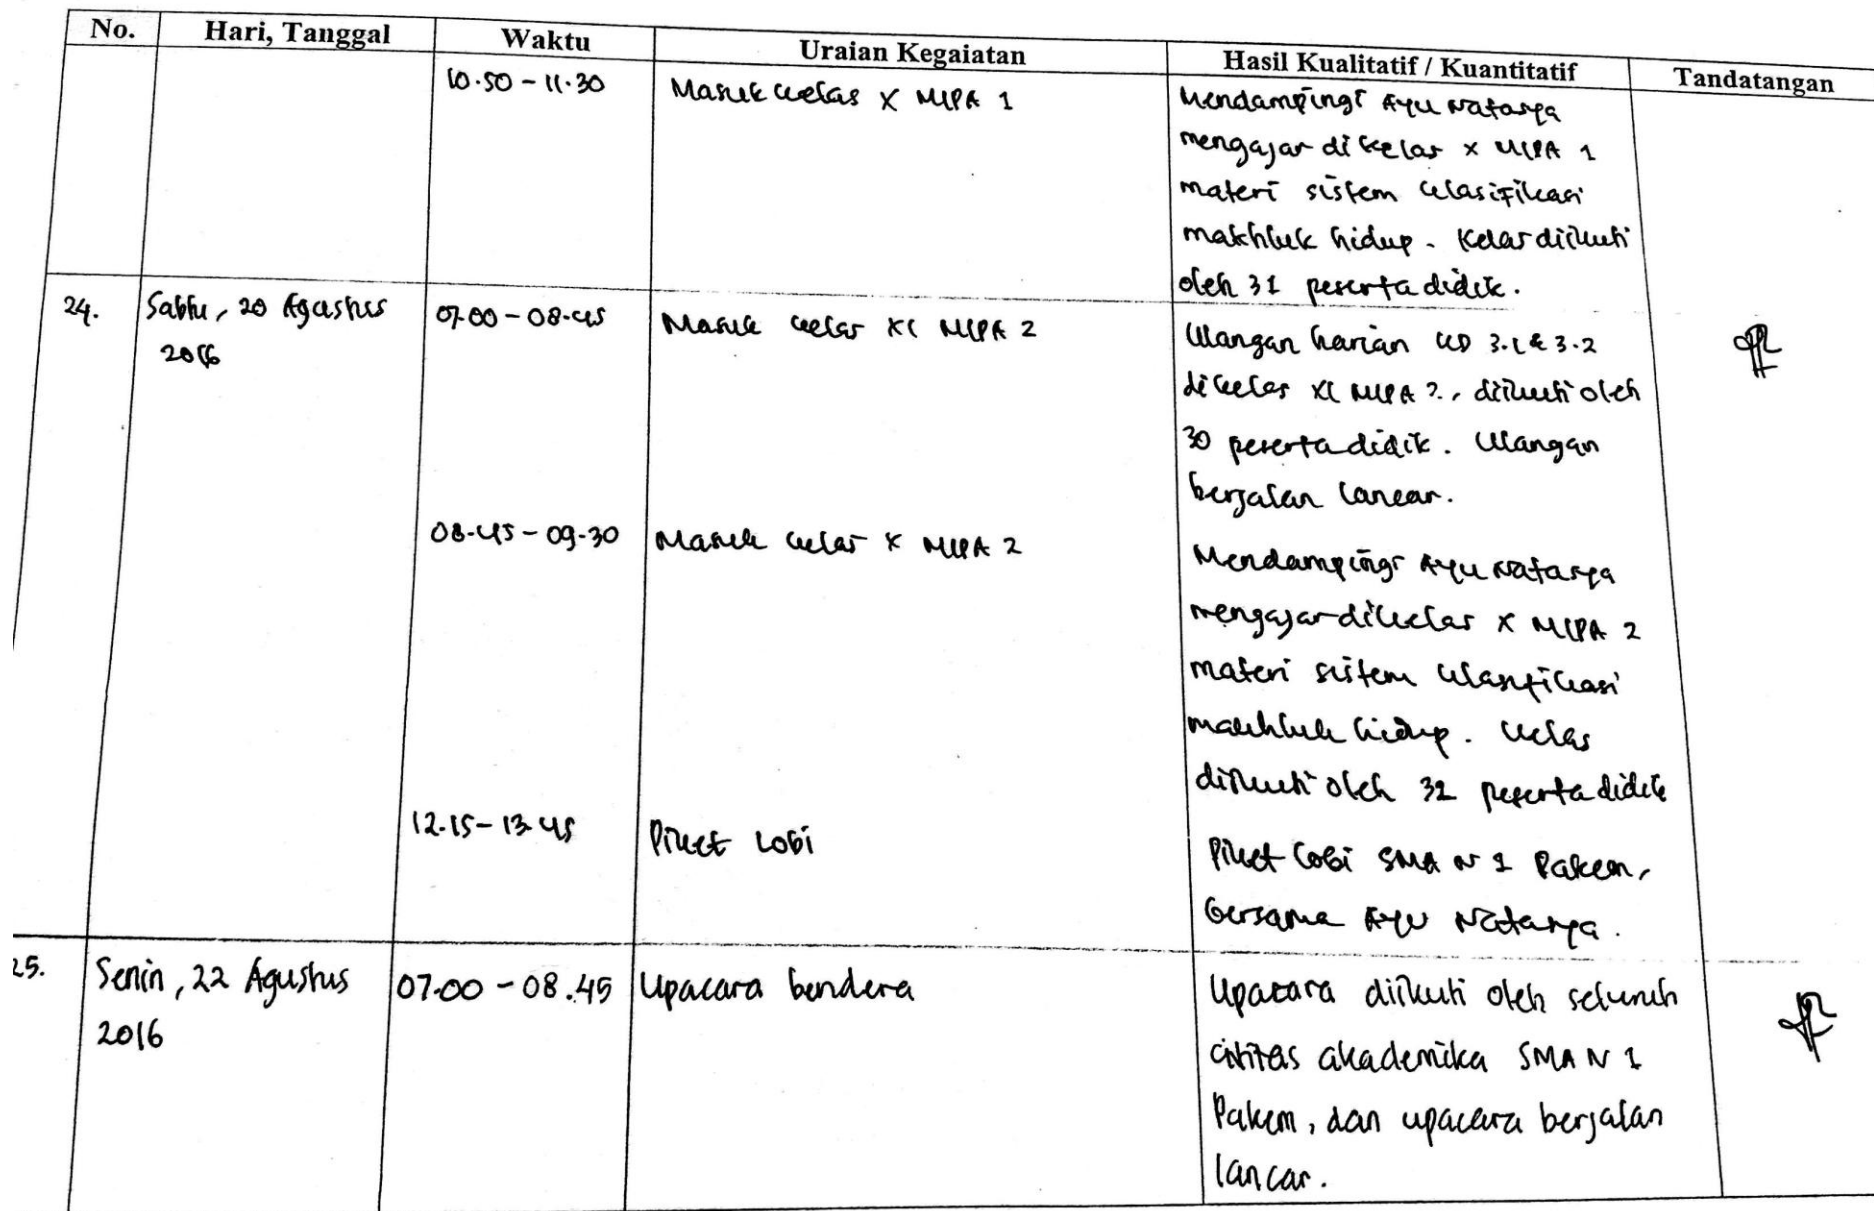 No. Hari, Tanggal Waktu Uraian Kegaiatan Hasil Kualitatif / Kuantitatif Tandatangan
10.50 - 11.30 Masuk kelas X MIPA 1 Mendampingi Ayu Natasya
mengajar di kelas X MIPA 1
materi sistem klasifikasi
makhluk hidup. Kelas diikuti
oleh 31 peserta didik.
24. Sabtu, 20 Agustus 07.00 - 08.45 Masuk kelas XI MIPA 2 Ulangan harian KD 3.1 & 3.2
2016 di kelas XI MIPA 2, diikuti oleh
30 peserta didik. Ulangan
berjalan lancar.
08.45 - 09.30 Masuk kelas X MIPA 2 Mendampingi Ayu Natasya
mengajar di kelas X MIPA 2
materi sistem klasifikasi
makhluk hidup. Kelas
diikuti oleh 32 peserta didik
12.15 - 13.45 Piket Lobi Piket Lobi SMA N 1 Pakem,
bersama Ayu Natasya.
25. Senin, 22 Agustus 07.00 - 08.45 Upacara bendera Upacara diikuti oleh seluruh
2016 civitas akademika SMA N 1
Pakem, dan upacara berjalan
lancar.